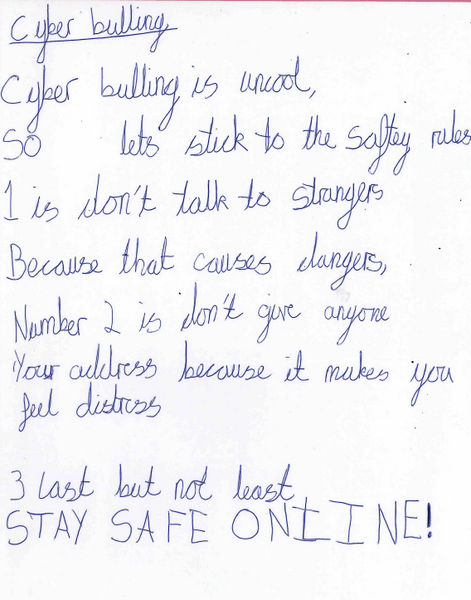 Cyber bulling
Cyber bulling is uncool,
So lets stick to the saftey rules
1 is don't talk to strangers
Because that causes dangers,
Number 2 is don't give anyone
Your address because it makes you
feel distress
3 Last but not least
STAY SAFE ONLINE!